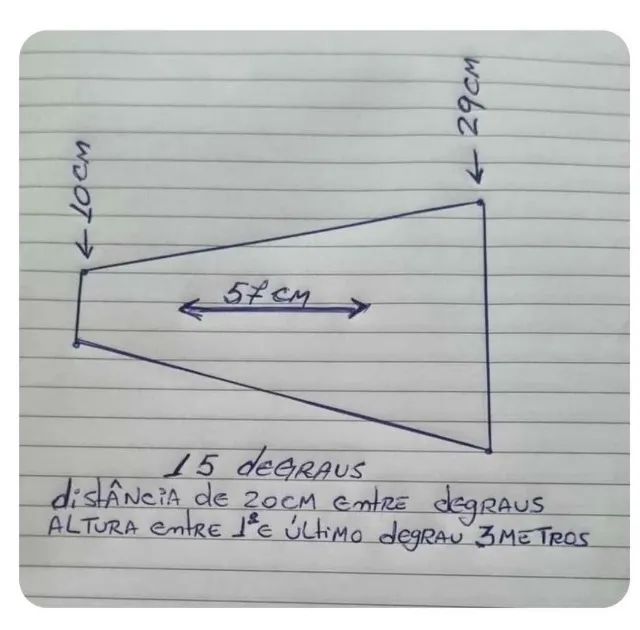 29CM
10CM
57CM
15 deGRAUS
distÂNCiA de 20CM entRe degRAUS
ALTURA entRe 1º e ÚLtiMO degRAU 3METROS